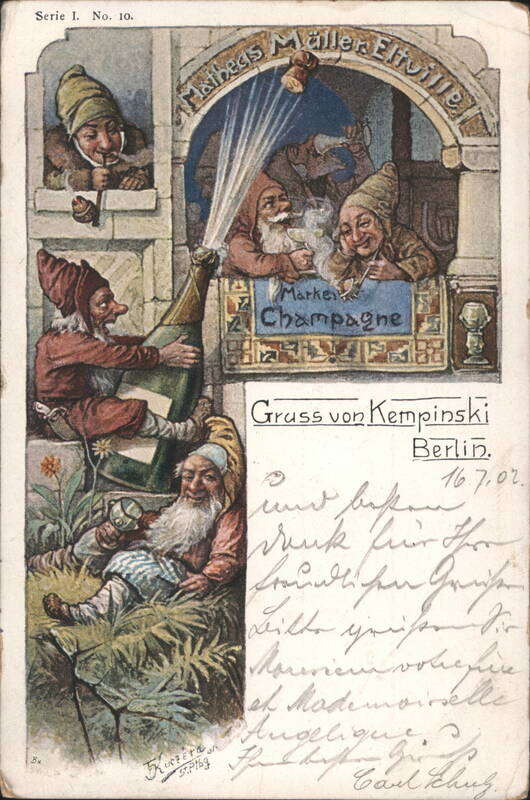 Serie I. No. 10.
Matheus Müller Eltville
Marke:
Champagne
Gruss von Kempinski
Berlin.
16/7.02.
und besten
Dank für Ihre
freundlichen Grüße
Bitte grüßen Sie
Monsieur votre
et Mademoiselle
Angelique
Ihr
Carl Schulz
Kuczéra
St. Ptbg